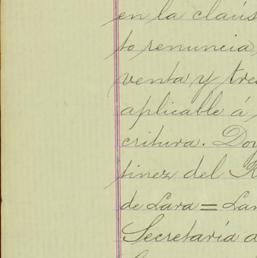 en la cláus
to renuncia
venta y tre
aplicable á
critura. Do
tinez del R
de Lara = Lau
Secretaría a